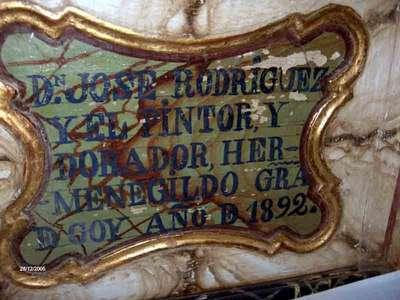 Dn JOSE RODRÍGUEZ
Y EL PINTOR, Y
DORADOR, HER-
-MENEGILDO GRA
D GOY AÑO D 1892.
28/12/2005